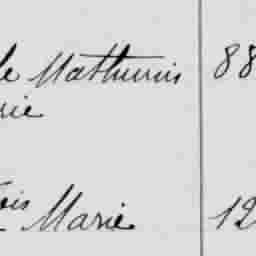 le Mathurin 88
rie
ois Marie 12